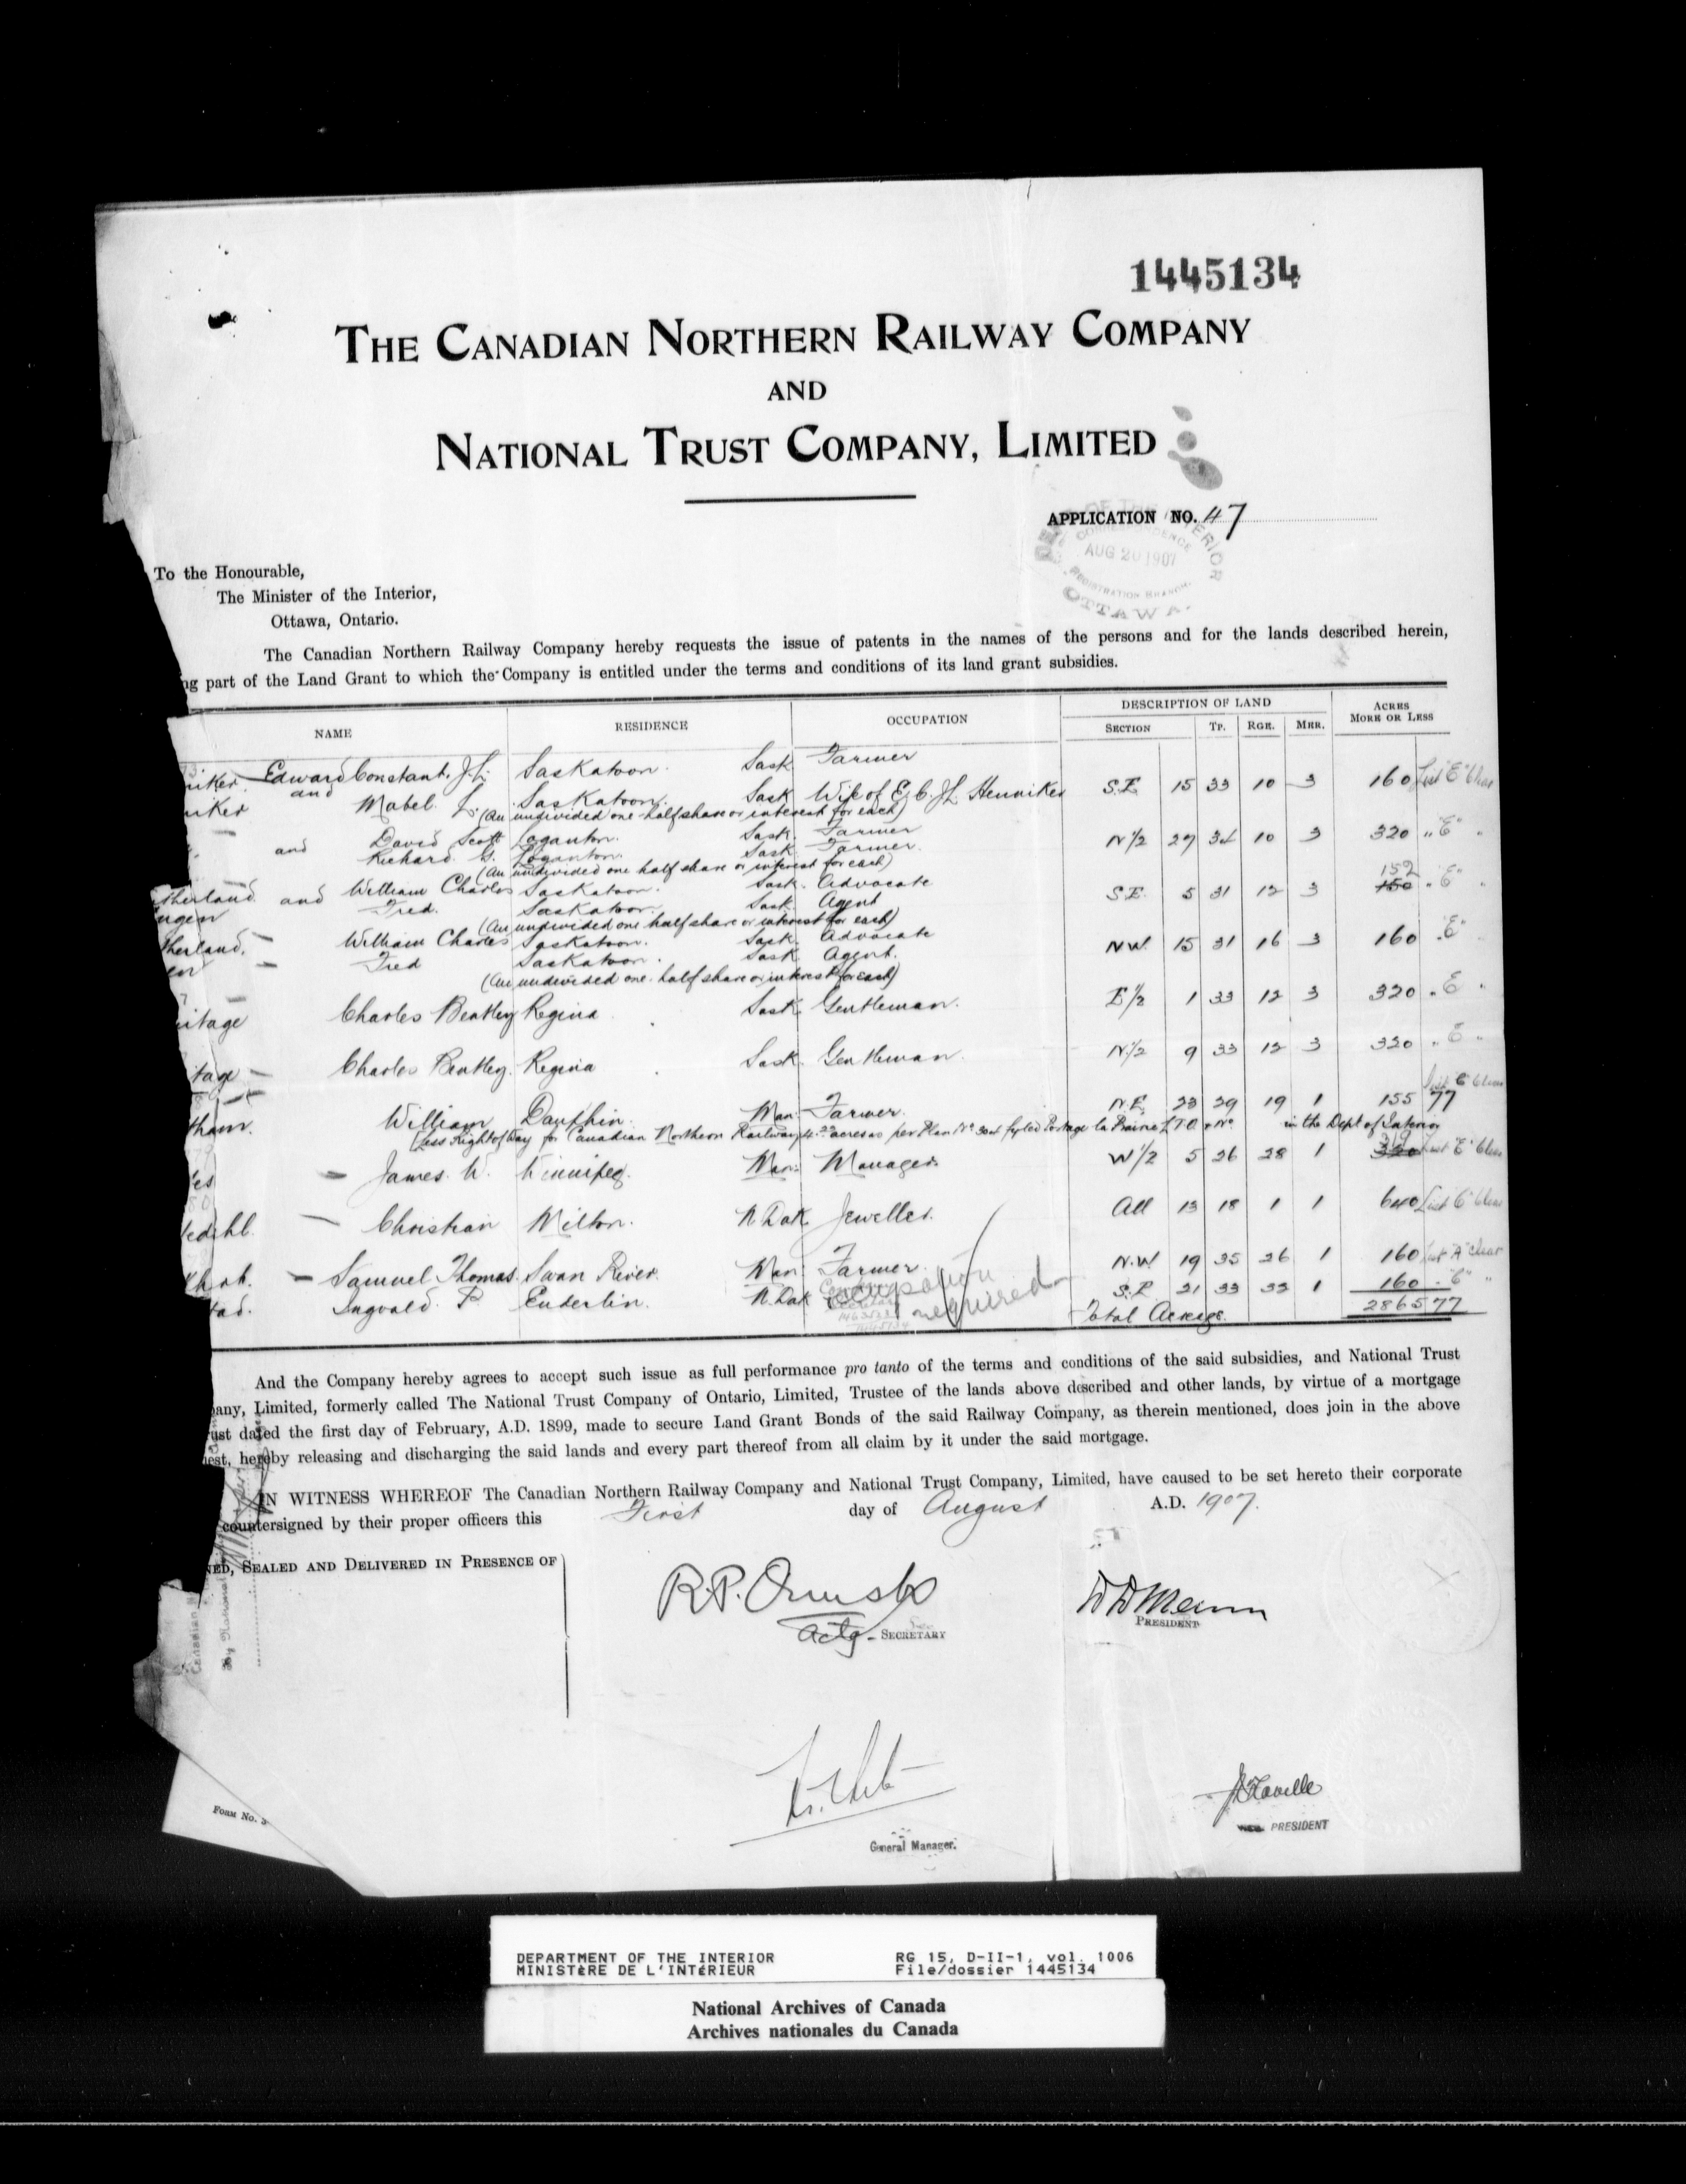 1445134
THE CANADIAN NORTHERN RAILWAY COMPANY
AND
NATIONAL TRUST COMPANY, LIMITED
APPLICATION NO. 47
DEPT OF THE INTERIOR
CORRESPONDENCE
AUG 20 1907
REGISTRATION BRANCH.
OTTAWA.
To the Honourable,
The Minister of the Interior,
Ottawa, Ontario.
The Canadian Northern Railway Company hereby requests the issue of patents in the names of the persons and for the lands described herein,
ng part of the Land Grant to which the Company is entitled under the terms and conditions of its land grant subsidies.
NAME RESIDENCE OCCUPATION DESCRIPTION OF LAND ACRES MORE OR LESS
SECTION TP. RGE. MER.
niker Edward Constant. J.L. Saskatoon. Sask Farmer
and
niker Mabel L. Saskatoon. Sask Wife of E.C.J.L. Henniker S.E. 15 33 10 3 160 List "E" Clear
(An undivided one half share or interest for each)
David Scott Loganton. Sask. Farmer
and Richard G. Loganton. Sask Farmer. N½ 29 34 10 3 320 " "E" "
(An undivided one half share or interest for each)
therland and William Charles Saskatoon. Sask. Advocate 152
ngen Fred. Saskatoon. Sask. Agent S.E. 5 31 12 3 150 " "E" "
(An undivided one half share or interest for each)
therland, — William Charles Saskatoon. Sask. Advocate
en — Fred Saskatoon. Sask Agent. NW. 15 31 16 3 160 " "E"
(An undivided one half share or interest for each)
itage Charles Bentley Regina Sask. Gentleman. E½ 1 33 12 3 320 " E "
tage — Charles Bentley. Regina Sask. Gentleman. N½ 9 33 12 3 320 " E "
tham. William Dauphin. Man. Farmer. N.E. 23 29 19 1 155 77 List "C" Clear
(Less Right of Way for Canadian Northern Railway 4.23 acres as per Plan No 304 fyled Portage la Prairie L.T.O. & No in the Dept of Interior
es — James W. Winnipeg. Man. Manager. W½ 5 26 28 1 320 319 List "E" Clear
edahl. — Christian Milton. N. Dak. Jeweller. All 13 18 1 1 640 List "C" Clear
— Samuel Thomas. Swan River. Man Farmer. N.W. 19 35 26 1 160 List "A" Clear
tad. Ingvald. P Enderlin. N. Dak Occupation required S.E. 31 33 33 1 160 " "C" "
Total Acreage. 2865 77
And the Company hereby agrees to accept such issue as full performance pro tanto of the terms and conditions of the said subsidies, and National Trust
pany, Limited, formerly called The National Trust Company of Ontario, Limited, Trustee of the lands above described and other lands, by virtue of a mortgage
rust dated the first day of February, A.D. 1899, made to secure Land Grant Bonds of the said Railway Company, as therein mentioned, does join in the above
uest, hereby releasing and discharging the said lands and every part thereof from all claim by it under the said mortgage.
IN WITNESS WHEREOF The Canadian Northern Railway Company and National Trust Company, Limited, have caused to be set hereto their corporate
countersigned by their proper officers this First day of August A.D. 1907.
NED, SEALED AND DELIVERED IN PRESENCE OF
R.P. Ormsby
Actg - SECRETARY
D D Mann
PRESIDENT
General Manager.
J W Flavelle
PRESIDENT
FORM NO. 3
DEPARTMENT OF THE INTERIOR
MINISTÈRE DE L'INTÉRIEUR
RG 15, D-II-1, vol. 1006
File/dossier 1445134
National Archives of Canada
Archives nationales du Canada